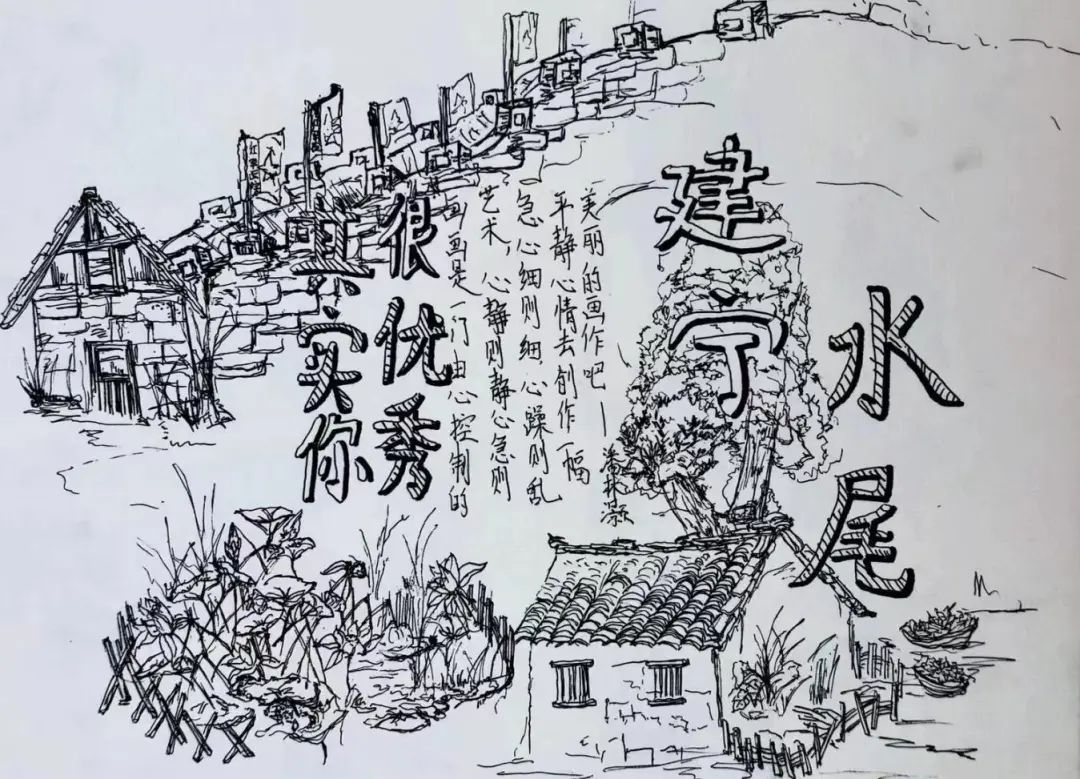 其实你
很优秀
画画是一门由心控制的
艺术，心静则静心急则
急心细则细心躁则乱
平静心情去创作一幅
美丽的画作吧——
建宁
水尾